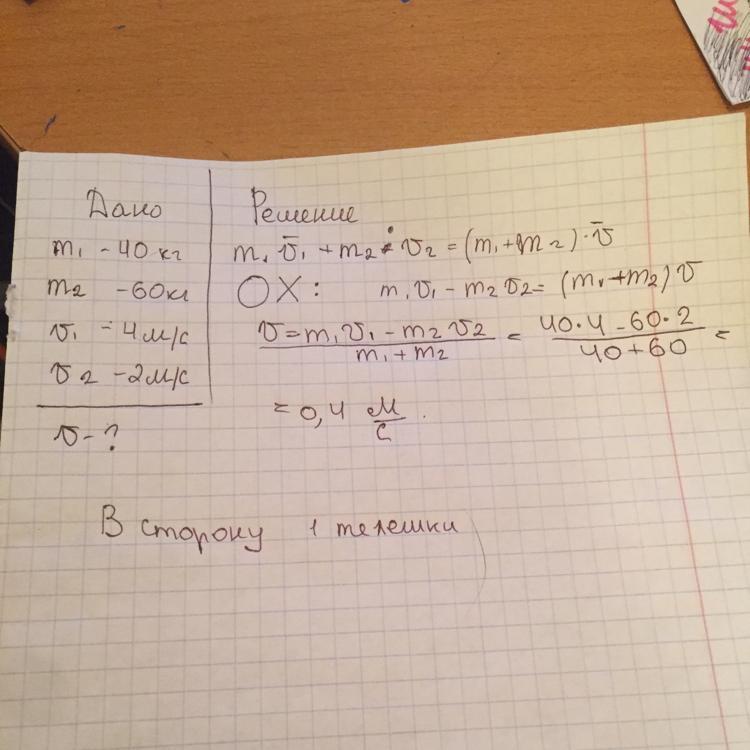 Дано
m₁ - 40 кг
m₂ - 60 кг
v₁ - 4 м/с
v₂ - 2 м/с
v - ?
Решение
m₁ v̄₁ + m₂ · v₂ = (m₁ + m₂) · v̄
OX: m₁v₁ - m₂v₂ = (m₁ + m₂) v
v = m₁v₁ - m₂v₂ / m₁ + m₂ = 40·4 - 60·2 / 40 + 60 =
= 0,4 м/с.
В сторону 1 телешки